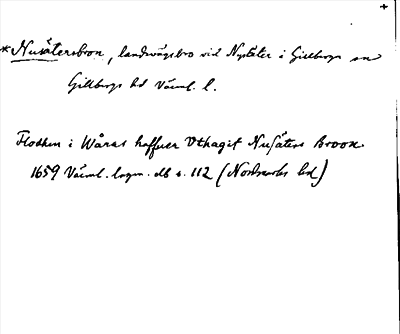 +
* Nusätersbron, landsvägsbro vid Nysäter i Gillbergs sn
Gillbergs hd Värml. l.
Flodhen i Wåras haffuer Vthagit Nusäters Broon
1659 Värml. lagm. db s. 112 (Nordmarks hd)